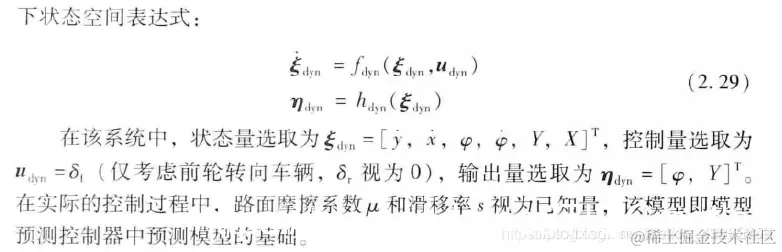 下状态空间表达式：
ξ̇dyn = fdyn(ξdyn,udyn)
ηdyn = hdyn(ξdyn)
(2.29)
在该系统中，状态量选取为ξdyn=[ẏ, ẋ, φ, φ̇, Y, X]ᵀ，控制量选取为
udyn=δf（仅考虑前轮转向车辆，δr视为0），输出量选取为ηdyn=[φ, Y]ᵀ。
在实际的控制过程中，路面摩擦系数μ和滑移率s视为已知量，该模型即模型
预测控制器中预测模型的基础。
@稀土掘金技术社区